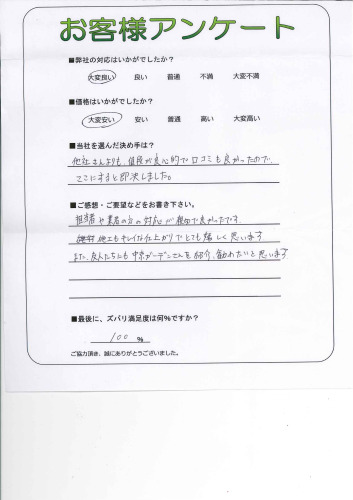 お客様アンケート
■弊社の対応はいかがでしたか？
大変良い 良い 普通 不満 大変不満
■価格はいかがでしたか？
大変安い 安い 普通 高い 大変高い
■当社を選んだ決め手は？
他社さんよりも、値段が良心的で口コミも良かったので、
ここにすると即決しました。
■ご感想・ご要望などをお書き下さい。
担当者や業者の方の対応が親切で良かったです。
施工もキレイな仕上がりでとても嬉しく思います
また、友人たちにも中京ガーデンさんを紹介、勧めたいと思います
■最後に、ズバリ満足度は何%ですか？
100 %
ご協力頂き、誠にありがとうございました。